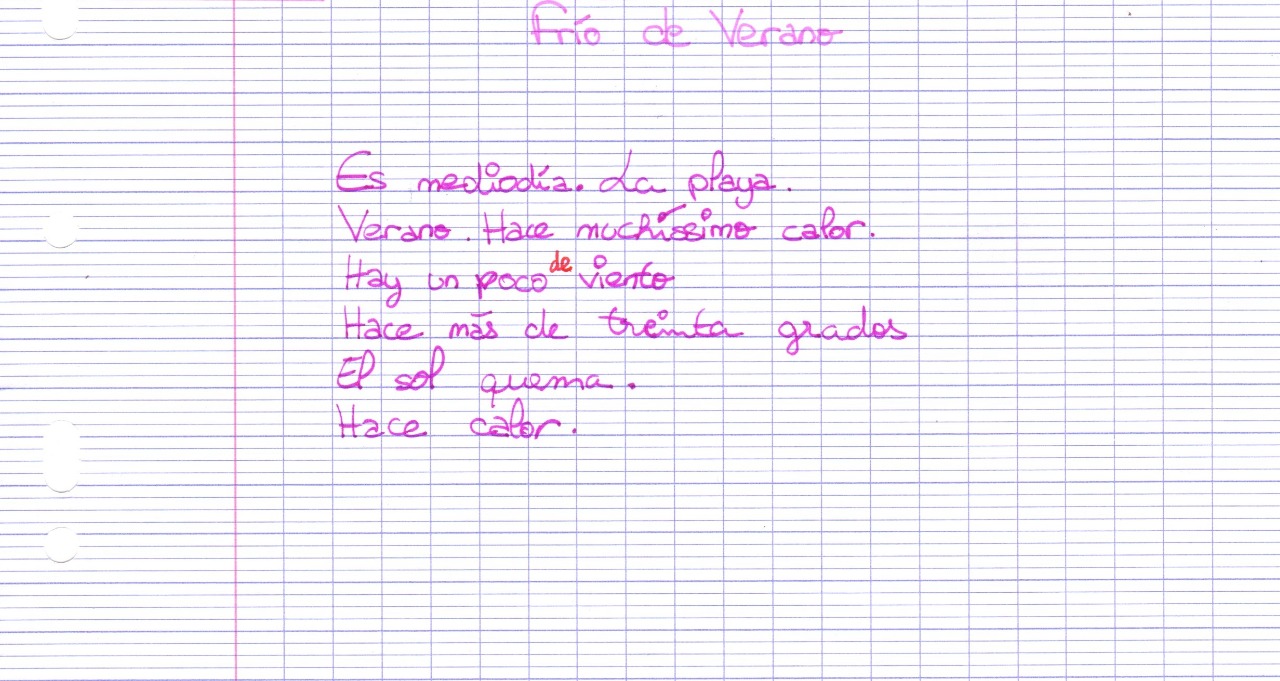 Frío de Verano
Es mediodía. La playa.
Verano. Hace muchíssimo calor.
Hay un poco de viento
Hace más de treinta grados
El sol quema.
Hace calor.